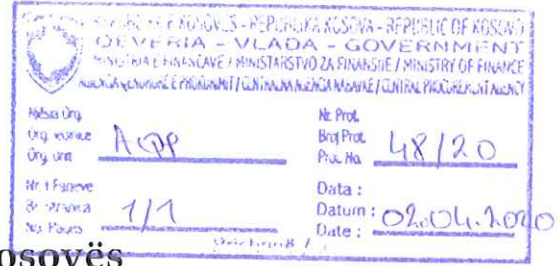 REPUBLIKA E KOSOVËS - REPUBLIKA KOSOVA - REPUBLIC OF KOSOVO
QEVERIA - VLADA - GOVERNMENT
MINISTRIA E FINANCAVE / MINISTARSTVO ZA FINANSIJE / MINISTRY OF FINANCE
AGJENCIA QENDRORE E PROKURIMIT / CENTRALNA AGENCIJA NABAVKE / CENTRAL PROCUREMENT AGENCY
Njësia Org.
Org. Jedinice
Org. Unit
Nr. Prot.
Broj Prot.
Prot. No.
48/20
Nr. i Faqeve
Br. Stranica
No. Pages
1/1
Data :
Datum :
Date :
02.04.2020
osovës